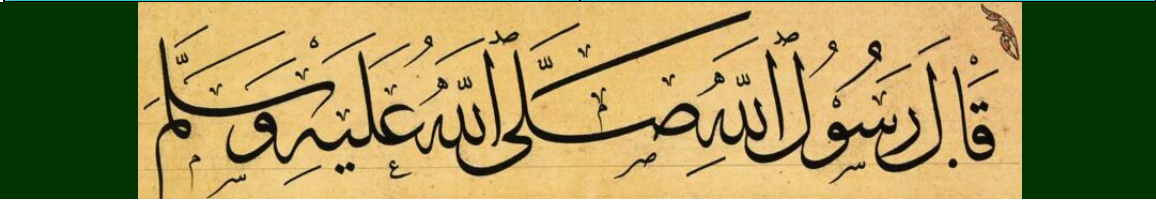 قَالَ رَسُولُ اللَّهِ صَلَّى اللَّهُ عَلَيْهِ وَسَلَّمَ